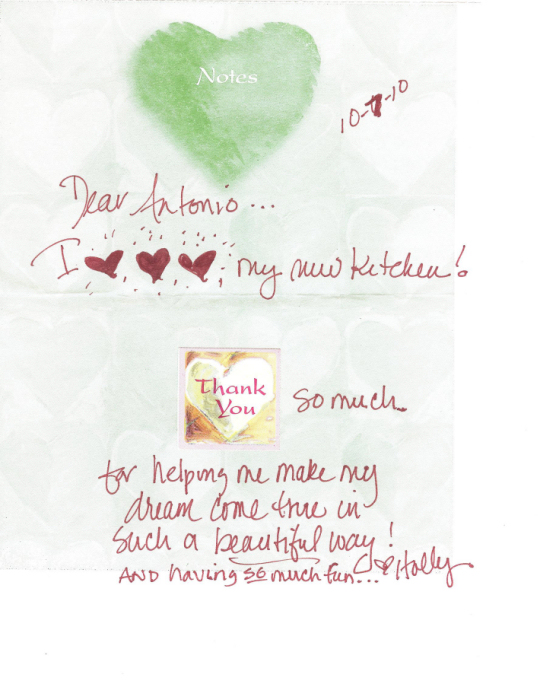 Notes
10-7-10
Dear Antonio...
I ♥♥♥ my new kitchen!
Thank
You
so much
for helping me make my
dream come true in
such a beautiful way!
AND having so much fun... ♥Holly